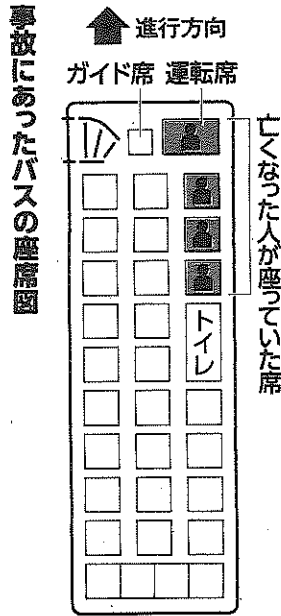 事故にあったバスの座席図
進行方向
ガイド席 運転席
亡くなった人が座っていた席
トイレ